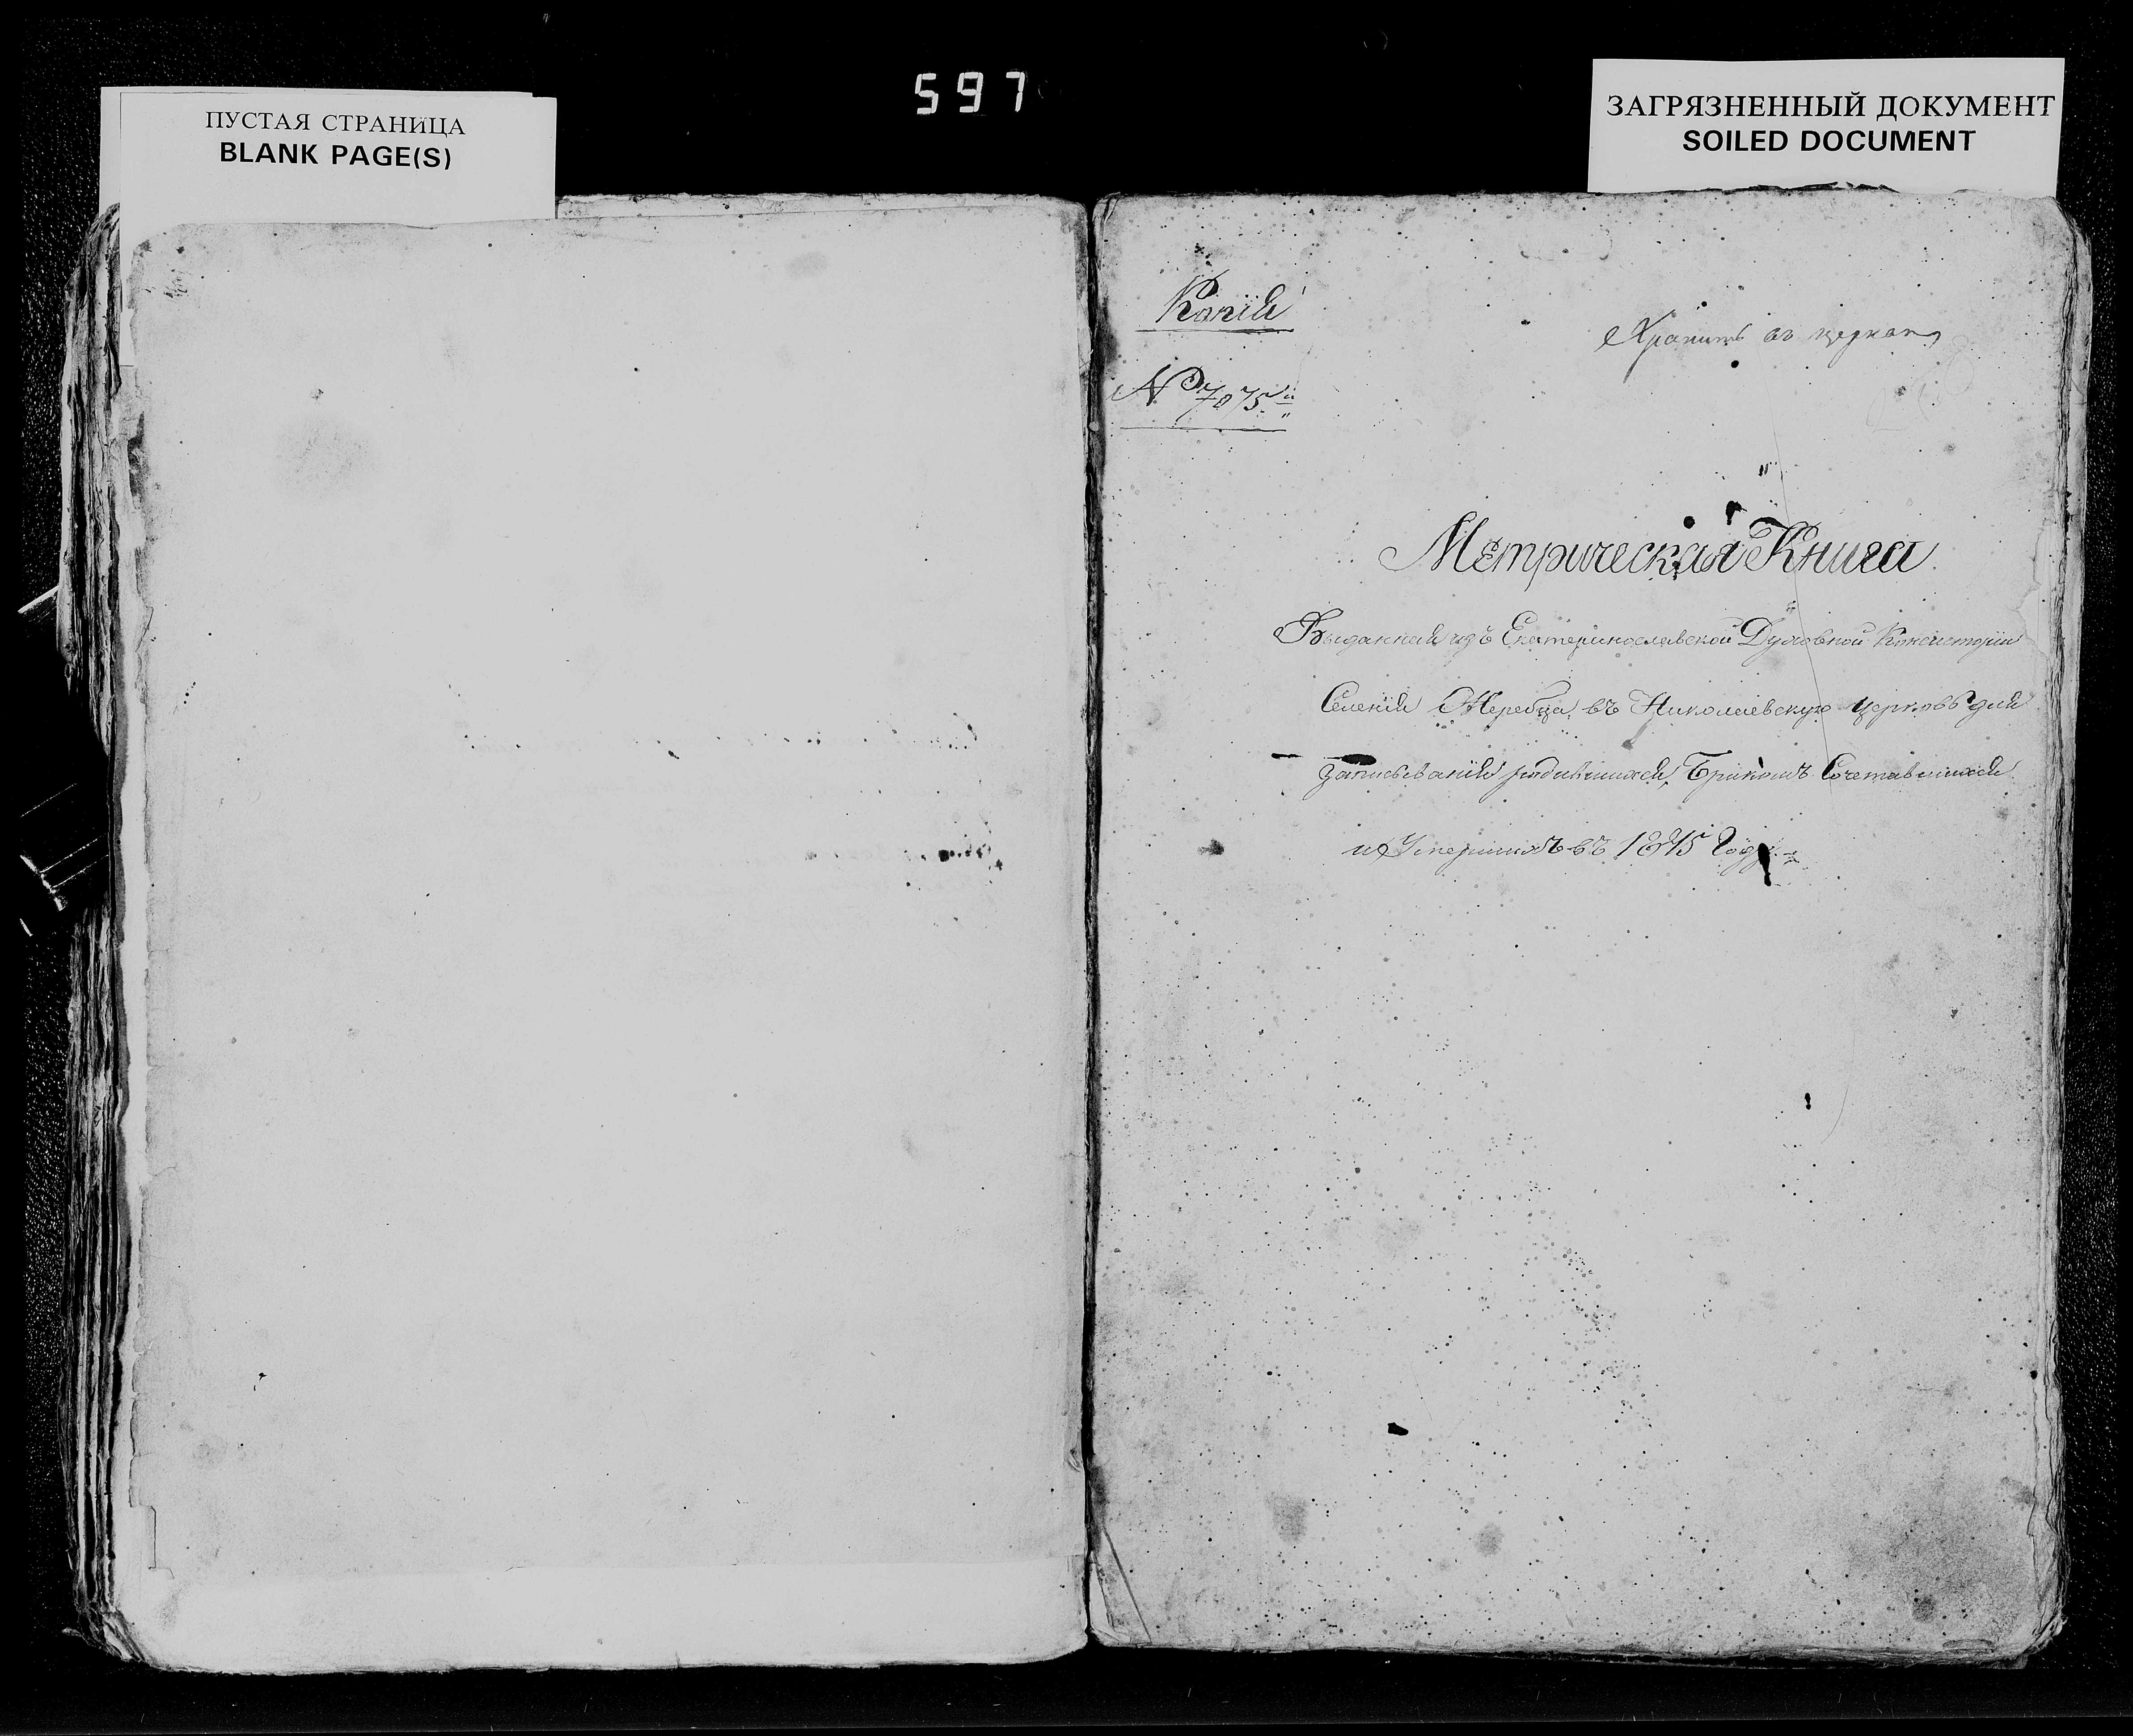 597
ПУСТАЯ СТРАНИЦА
BLANK PAGE(S)
ЗАГРЯЗНЕННЫЙ ДОКУМЕНТ
SOILED DOCUMENT
Копія
Хранить въ церкви
№ 7075й
Метрическая Книга
Выданная изъ Екатеринославской Духовной Консисторіи
Селенія Жеребца въ Николаевскую церковь для
записыванія родившихся, Бракомъ Сочетавшихся
и Умершихъ въ 1845 Году